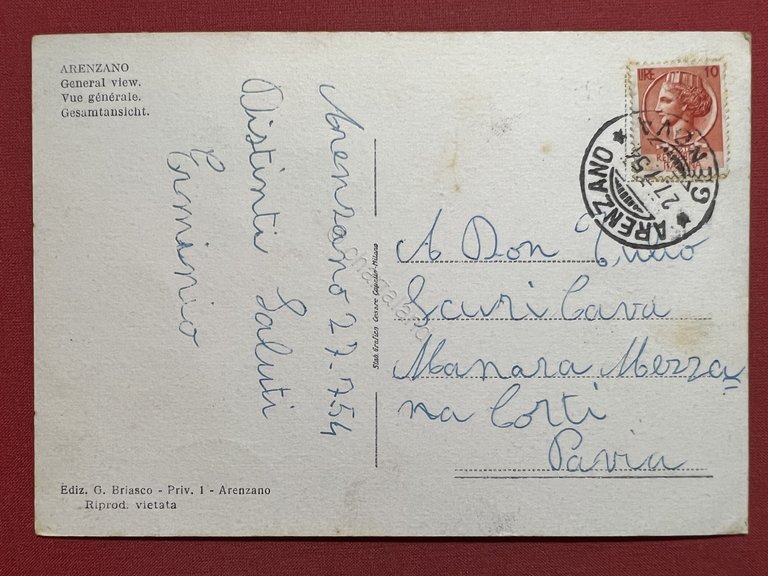 ARENZANO
General view.
Vue générale.
Gesamtansicht.
Arenzano 27-7 54
Distinti Saluti
Erminio
Stab. Grafico Cesare Capello-Milano
LIRE 10
ARENZANO
GENOVA
27.7.54
A Don
Scuri Cava
Manara Mezza=
na Corti
Pavia
Ediz. G. Briasco - Priv. 1 - Arenzano
Riprod. vietata